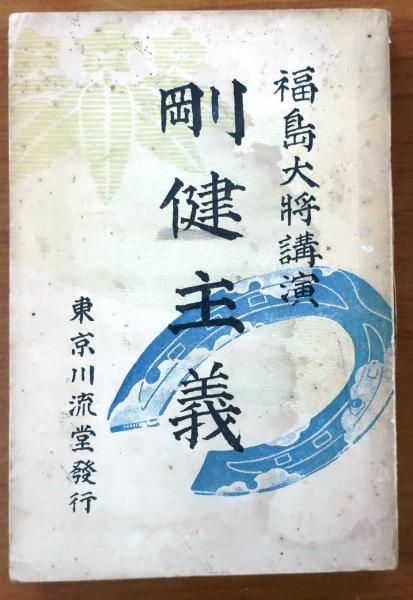 福島大將講演
剛健主義
東京川流堂發行